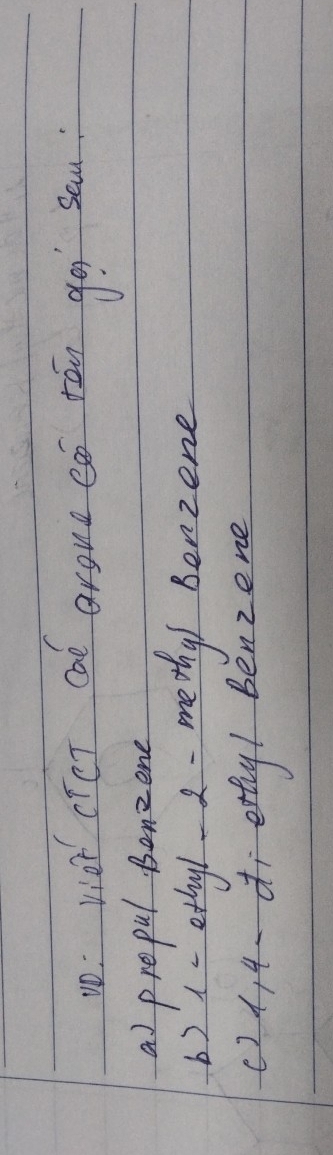 VD: viết CTCT các arene có tên gọi sau:
a) propyl Benzene
b) 1 - ethyl - 2 - methyl Benzene
c) 1,4 - di ethyl Benzene